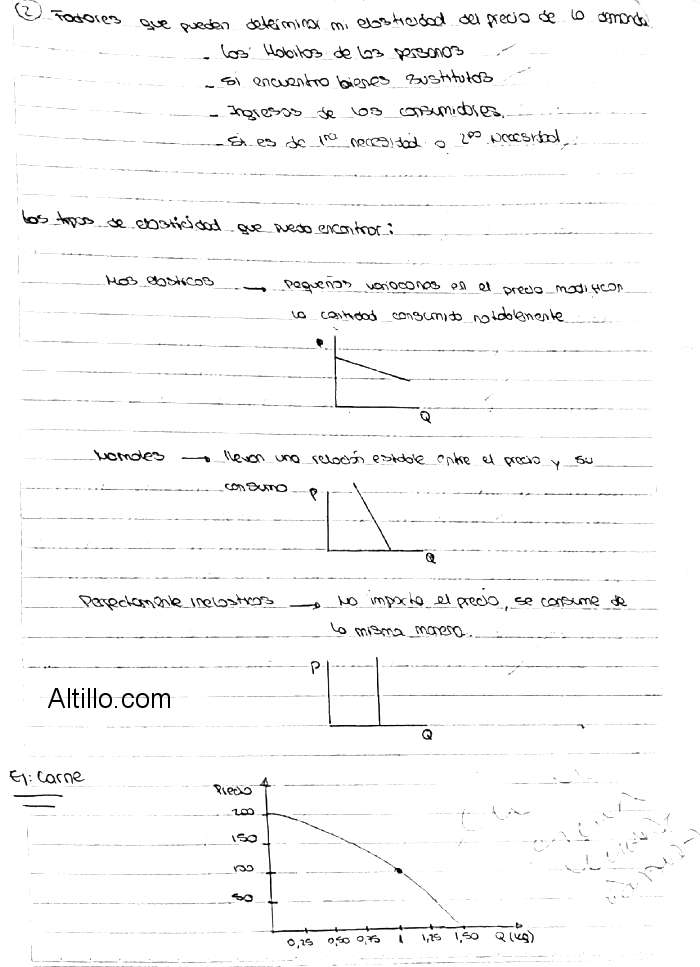 2) Factores que pueden determinar mi elasticidad del precio de la demanda
- Los Habitos de las personas
- Si encuentro bienes sustitutos
- Ingresos de los consumidores.
- Si es de 1ra necesidad o 2da Necesidad.
Los tipos de elasticidad que puedo encontrar:
Mas elasticos → pequeñas variaciones en el precio modifican
la cantidad consumida notablemente
P
Q
Normales → llevan una relación estable entre el precio y su
consumo
P
Q
Perfectamente inelasticos → No importa el precio, se consume de
la misma manera.
P
Altillo.com
Q
Ej: Carne
Precio
200
150
100
50
0,25 0,50 0,75 1 1,25 1,50 Q (Kg)